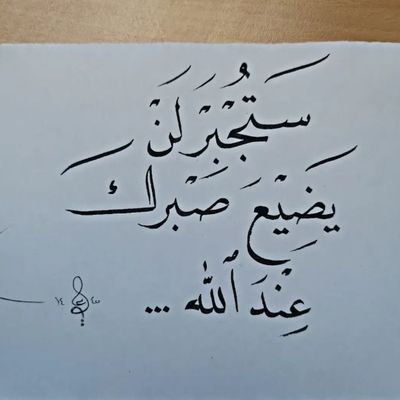 سَتُجْبَرْ لَنْ
يَضِيْعَ صَبْرك
عِنْدَ ٱللّٰه ...